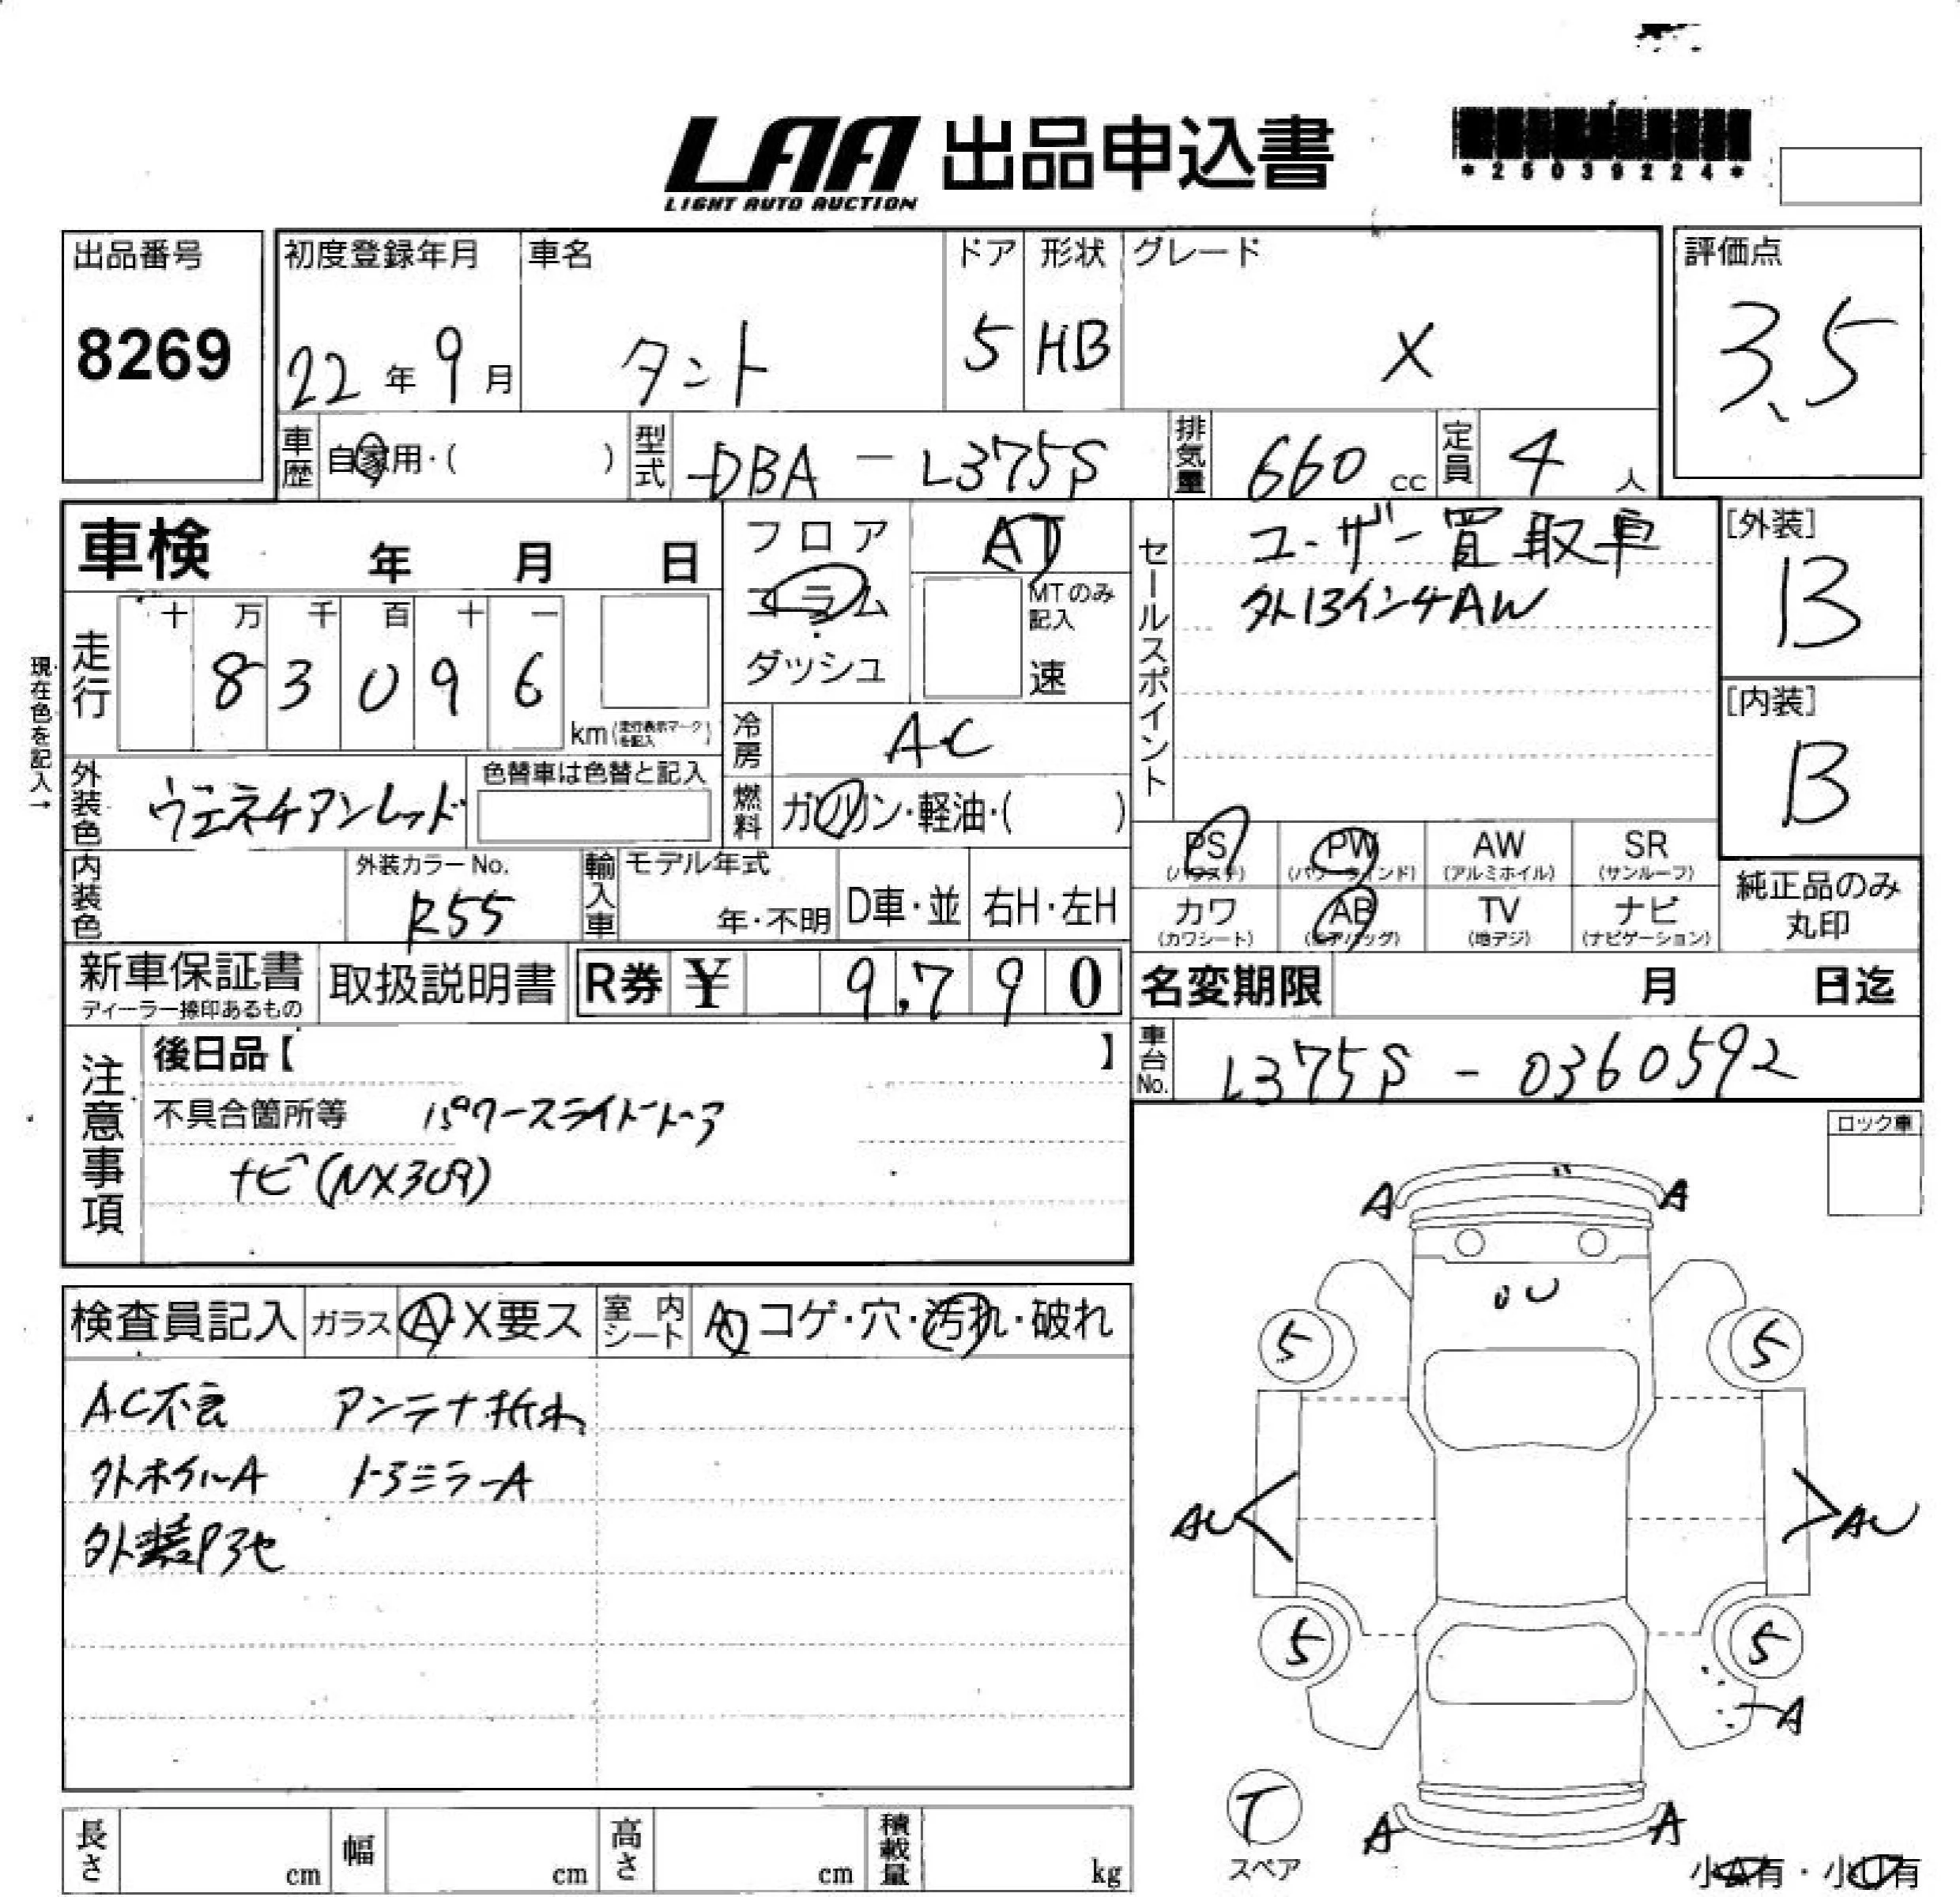 LAA 出品申込書
LIGHT AUTO AUCTION
*25039224*
出品番号
8269
初度登録年月
22年9月
車名
タント
ドア
5
形状
HB
グレード
X
評価点
3.5
車歴
自家用・( )
型式
DBA-L375S
排気量
660 cc
定員
4人
車検 年 月 日
フロア
コラム
ダッシュ
AT
MTのみ記入
速
セールスポイント
ユーザー買取車
外13インチAW
[外装]
B
[内装]
B
現在色を記入→
走行
十万千百十一
83096
km(走行表示マークを記入)
冷房
AC
燃料
ガソリン・軽油・( )
外装色
ヴェネチアンレッド
色替車は色替と記入
PS
(パワステ)
PW
(パワーウインド)
AW
(アルミホイル)
SR
(サンルーフ)
カワ
(カワシート)
AB
(エアバッグ)
TV
(地デジ)
ナビ
(ナビゲーション)
純正品のみ
丸印
内装色
外装カラーNo.
R55
輸入車
モデル年式
年・不明
D車・並
右H・左H
新車保証書
ディーラー捺印あるもの
取扱説明書
R券 ¥ 9,790
名変期限 月 日迄
車台No.
L375S-0360592
注意事項
後日品【 】
不具合箇所等 パワースライドドア
ナビ(NX309)
ロック車
検査員記入
ガラス
A・X要ス
室内シート
コゲ・穴・汚れ・破れ
AC不良 アンテナ折れ
外ホイルA ドアミラーA
A A
U
5 5
AU AU
5 5
A
T
スペア
A A
小A有・小U有
長さ cm
幅 cm
高さ cm
積載量 kg